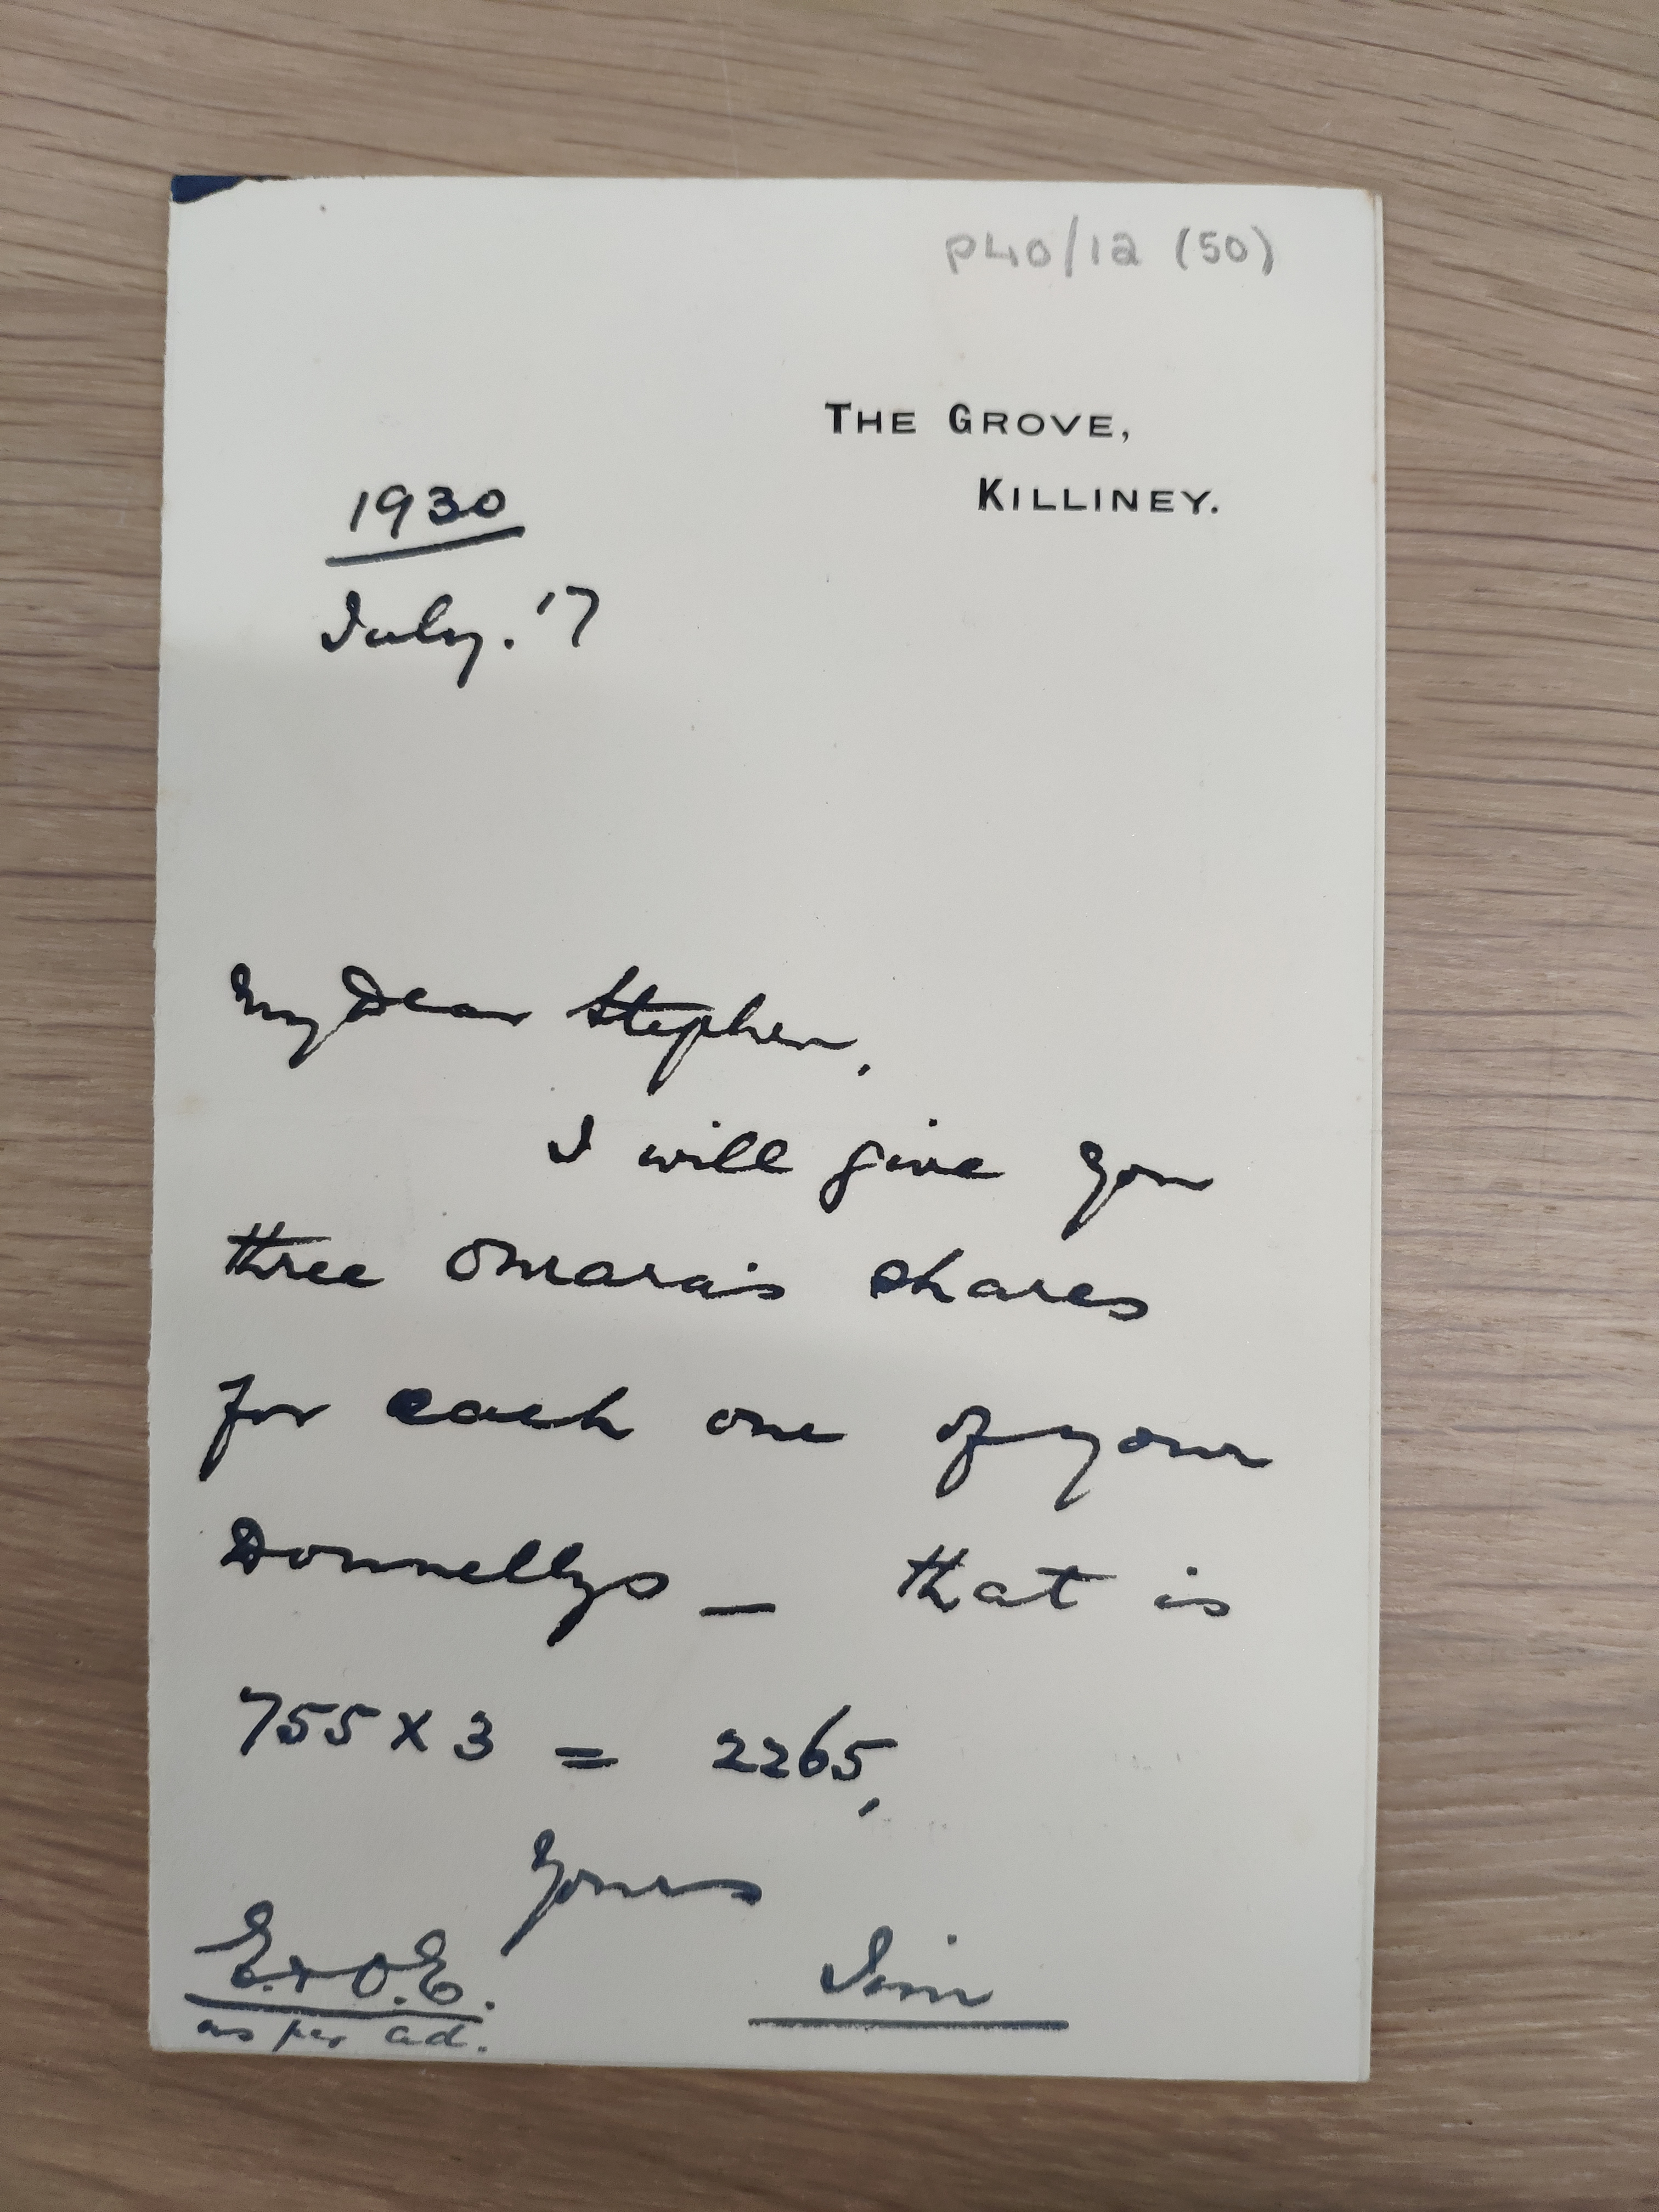 P40/12 (50)
THE GROVE,
KILLINEY.
1930
July. '7
My Dear Stephen,
I will give you
three Omara's shares
for each one of your
Donnellys — that is
755 x 3 = 2265,
Yours
Jim
E. + O.E.
as per ad.